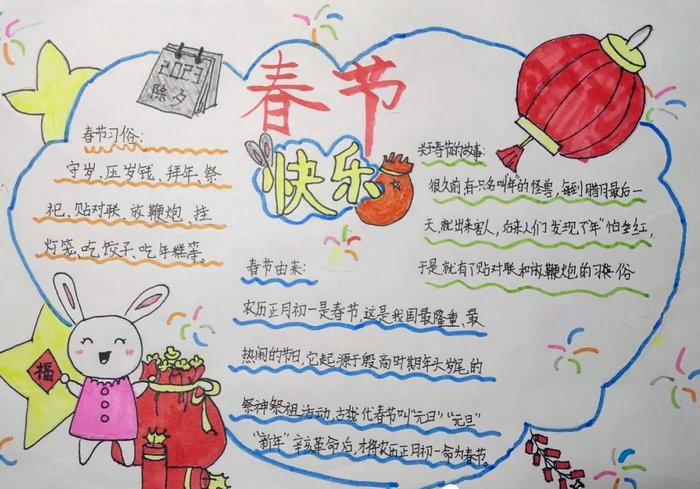 2023
除夕
春节
快乐
春节习俗:
守岁、压岁钱、拜年、祭
祀、贴对联、放鞭炮、挂
灯笼、吃饺子、吃年糕等。
关于春节的故事:
很久前有一只名叫"年"的怪兽,每到腊月最后一
天,就出来害人,后来人们发现了"年"怕红,
于是就有了贴对联和放鞭炮的习俗
春节由来:
农历正月初一是春节,这是我国最隆重、最
热闹的节日,它起源于殷商时期年头岁尾的
祭神祭祖活动,古代春节叫"元日""元旦"
"新年"辛亥革命后,才将农历正月初一命为春节。
福